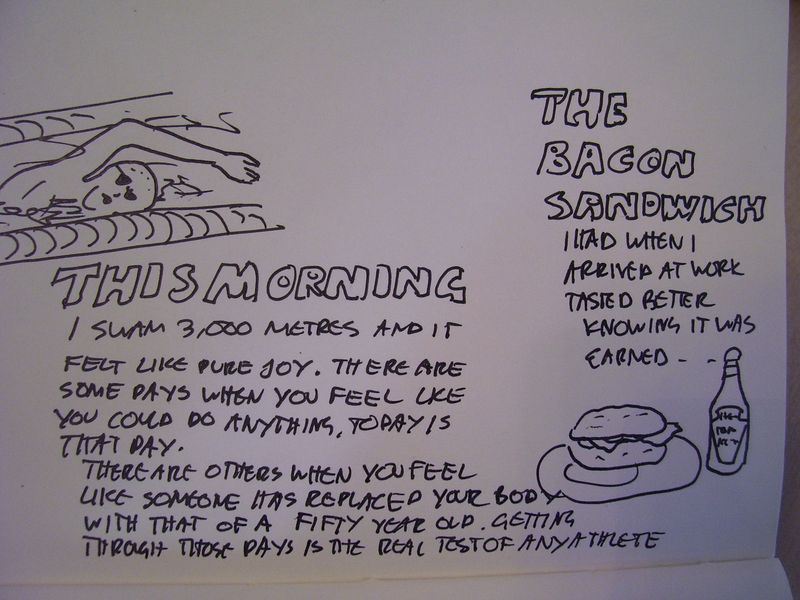 THIS MORNING
I SWAM 3,000 METRES AND IT
FELT LIKE PURE JOY. THERE ARE
SOME DAYS WHEN YOU FEEL LIKE
YOU COULD DO ANYTHING, TODAY IS
THAT DAY.
THERE ARE OTHERS WHEN YOU FEEL
LIKE SOMEONE HAS REPLACED YOUR BODY
WITH THAT OF A FIFTY YEAR OLD. GETTING
THROUGH THOSE DAYS IS THE REAL TEST OF ANY ATHLETE
THE
BACON
SANDWICH
I HAD WHEN I
ARRIVED AT WORK
TASTED BETTER
KNOWING IT WAS
EARNED - -